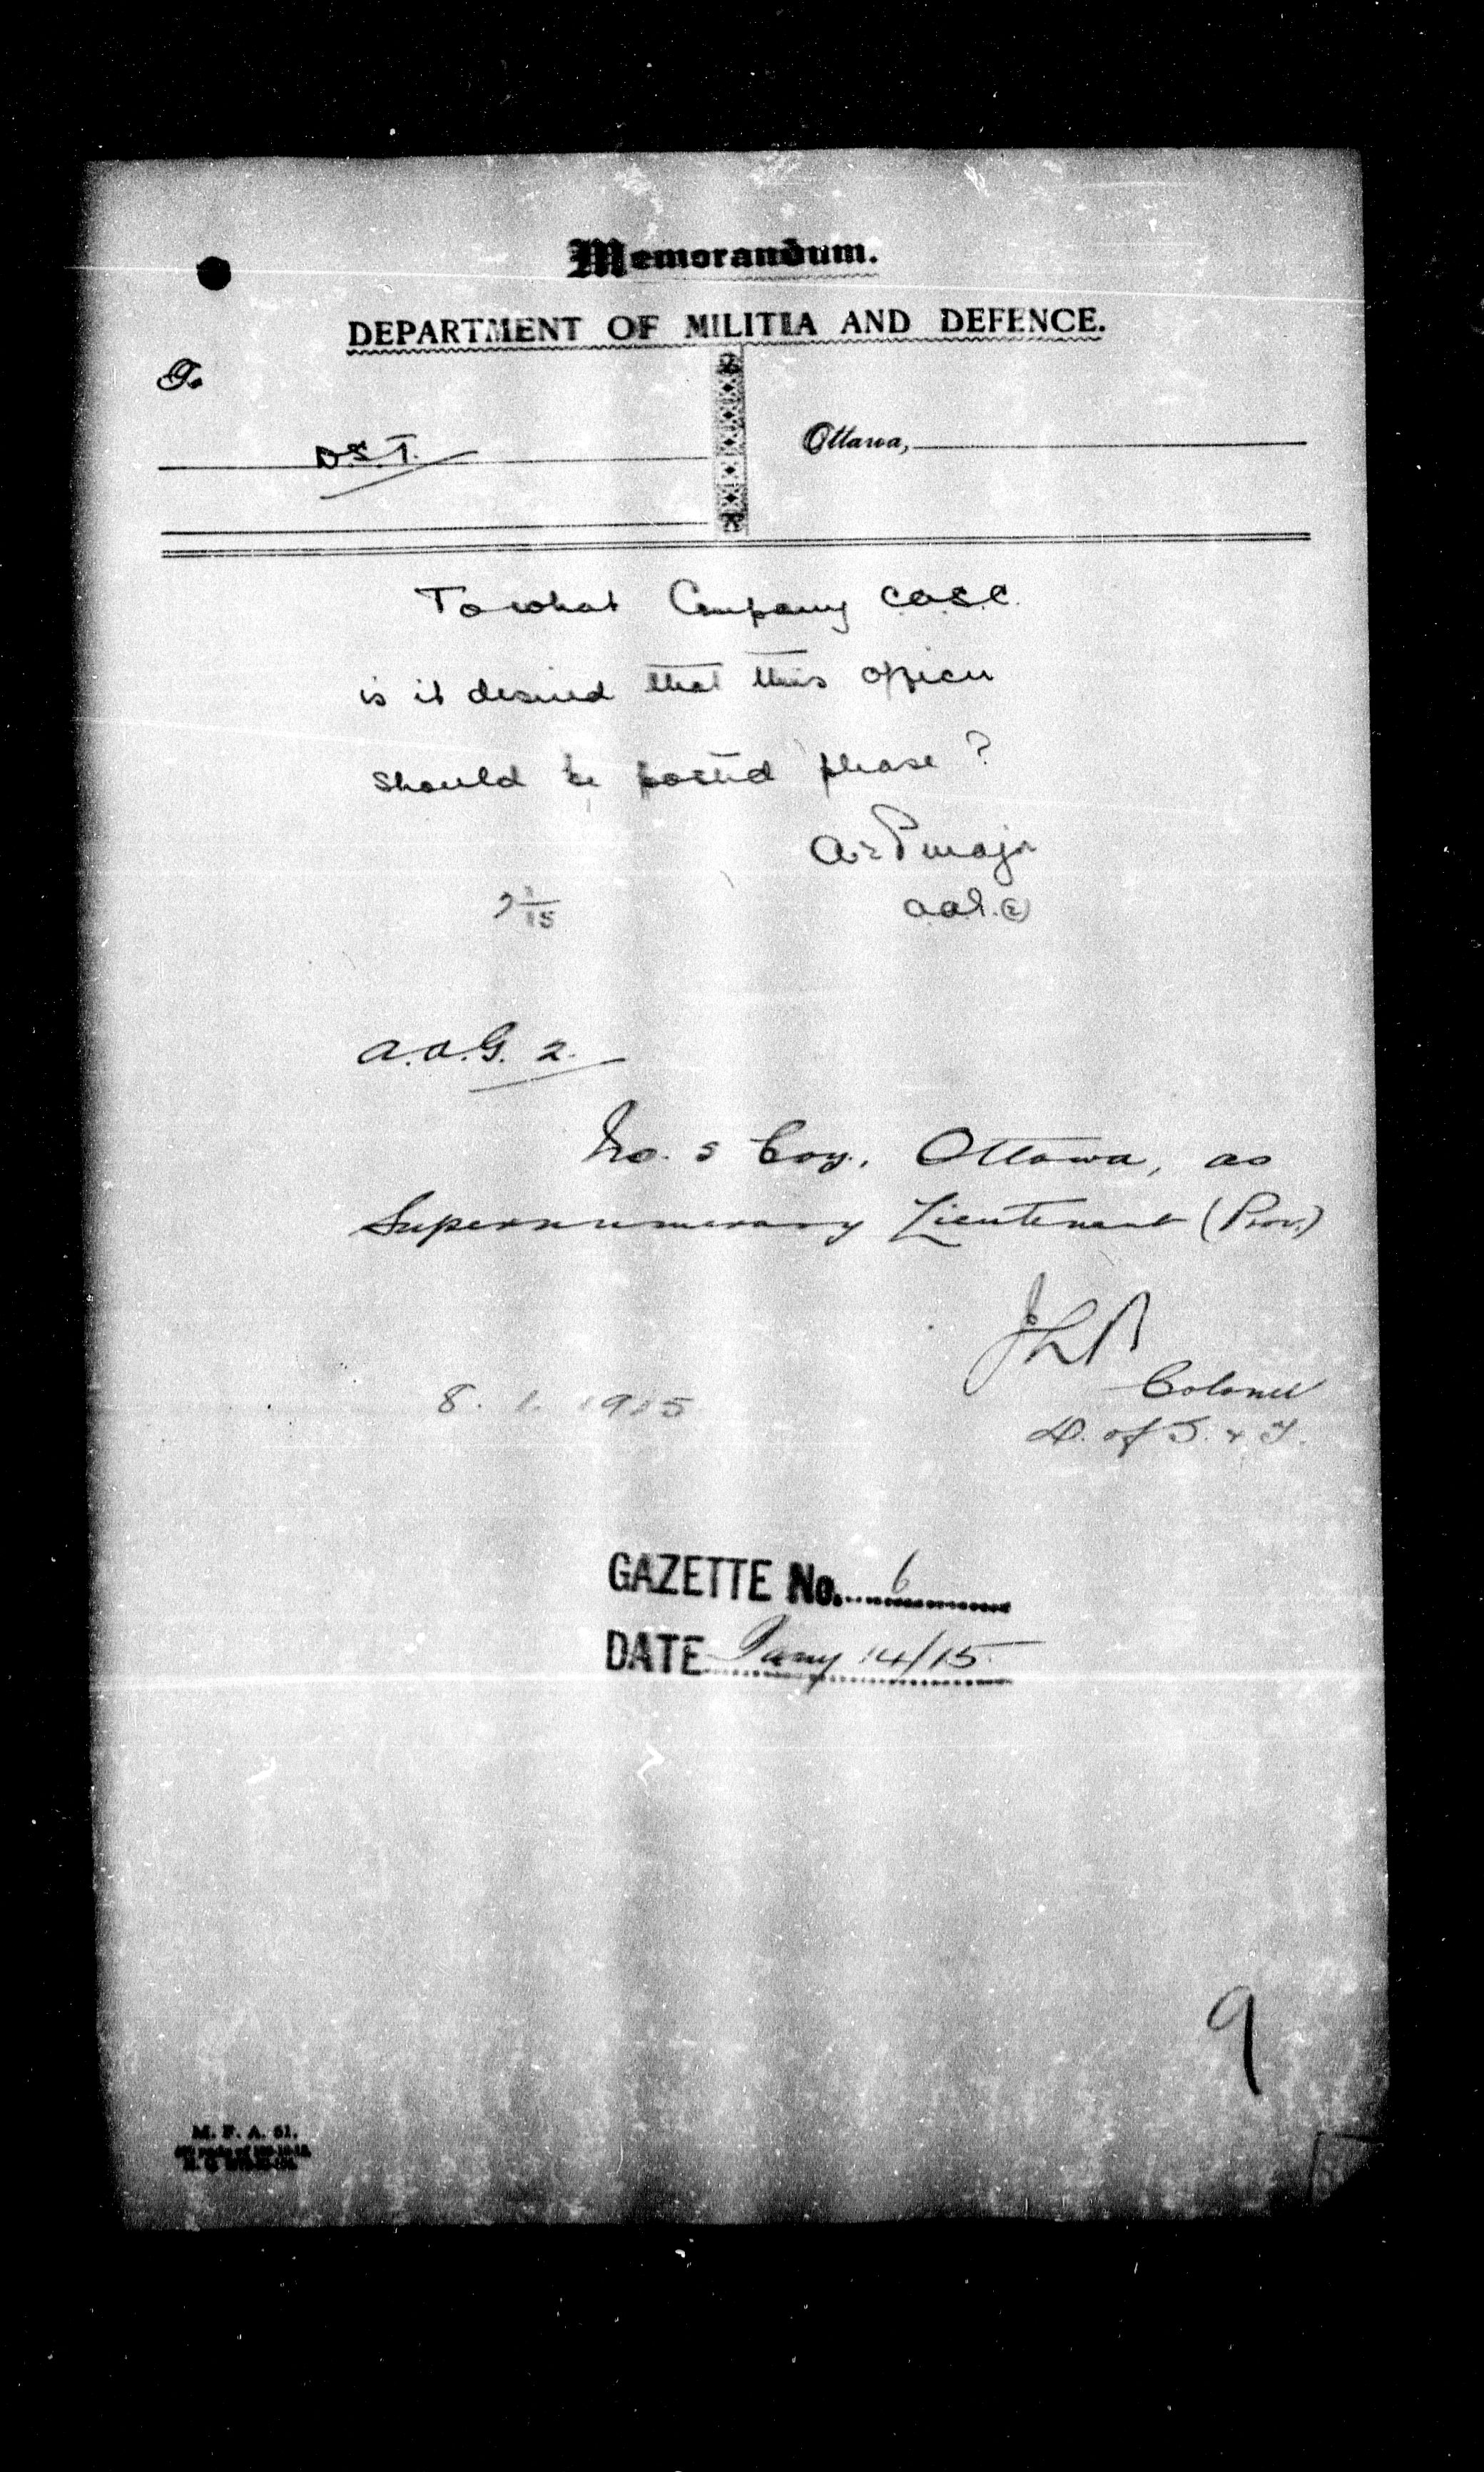 Memorandum.
DEPARTMENT OF MILITIA AND DEFENCE.
To
D.S.T.
Ottawa,
To what Company C.A.S.C.
is it desired that this officer
should be posted please?
Major
A.A.G. 2
A.A.G. 2.
No. 5 Coy. Ottawa, as
Supernumerary Lieutenant (Prov.)
Colonel
D. of S. & T.
8. 1. 1915
GAZETTE No. 6
DATE Jany 14/15
9
M. F. A. 61.